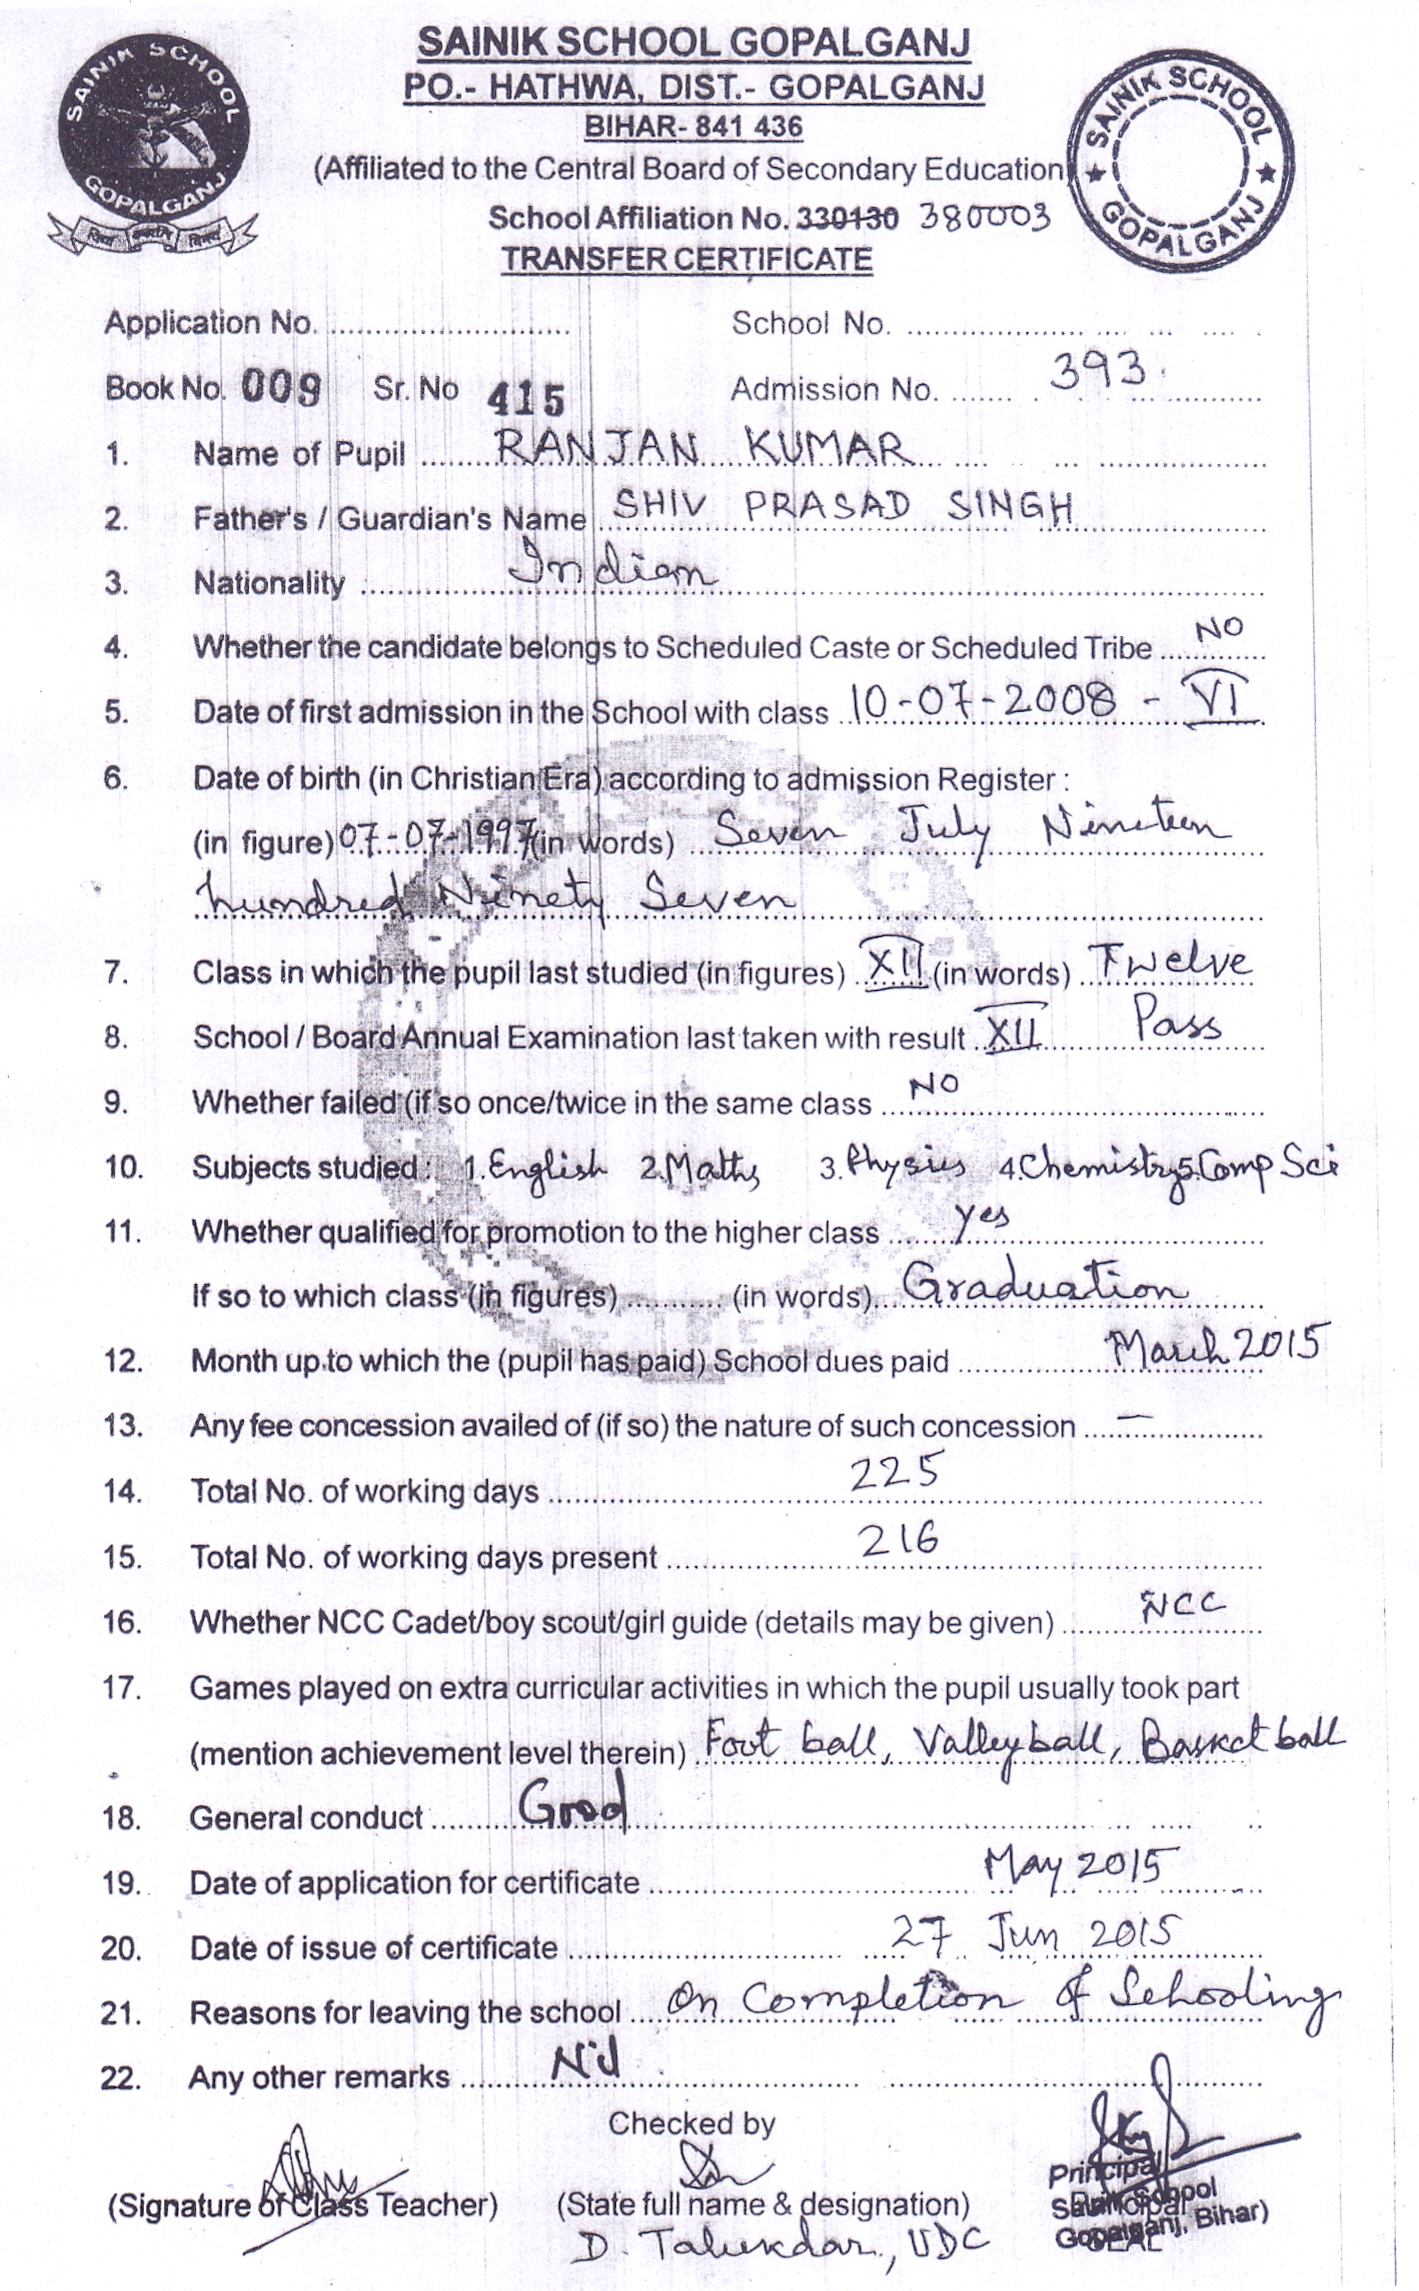 SAINIK SCHOOL GOPALGANJ
PO.- HATHWA, DIST.- GOPALGANJ
BIHAR- 841 436
(Affiliated to the Central Board of Secondary Education
School Affiliation No. 330130 380003
TRANSFER CERTIFICATE
SAINIK SCHOOL
GOPALGANJ
SAINIK SCHOOL
GOPALGANJ
Application No. School No.
Book No. 009 Sr. No 415 Admission No. 393.
1. Name of Pupil RANJAN KUMAR
2. Father's / Guardian's Name SHIV PRASAD SINGH
3. Nationality Indian
4. Whether the candidate belongs to Scheduled Caste or Scheduled Tribe NO
5. Date of first admission in the School with class 10-07-2008 - VI
6. Date of birth (in Christian Era) according to admission Register :
(in figure) 07-07-1997 (in words) Seven July Nineteen
hundred Ninety Seven
7. Class in which the pupil last studied (in figures) XII (in words) Twelve
8. School / Board Annual Examination last taken with result XII Pass
9. Whether failed (if so once/twice in the same class NO
10. Subjects studied : 1.English 2.Maths 3.Physics 4.Chemistry 5.Comp Sci
11. Whether qualified for promotion to the higher class yes
If so to which class (in figures) (in words) Graduation
12. Month up to which the (pupil has paid) School dues paid March 2015
13. Any fee concession availed of (if so) the nature of such concession —
14. Total No. of working days 225
15. Total No. of working days present 216
16. Whether NCC Cadet/boy scout/girl guide (details may be given) NCC
17. Games played on extra curricular activities in which the pupil usually took part
(mention achievement level therein) Foot ball, Valleyball, Basket ball
18. General conduct Good
19. Date of application for certificate May 2015
20. Date of issue of certificate 27 Jun 2015
21. Reasons for leaving the school On Completion of Schooling
22. Any other remarks Nil
Checked by
(Signature of Class Teacher) (State full name & designation)
D. Talukdar, UDC
Principal
School
Gopalganj, Bihar)
SEAL